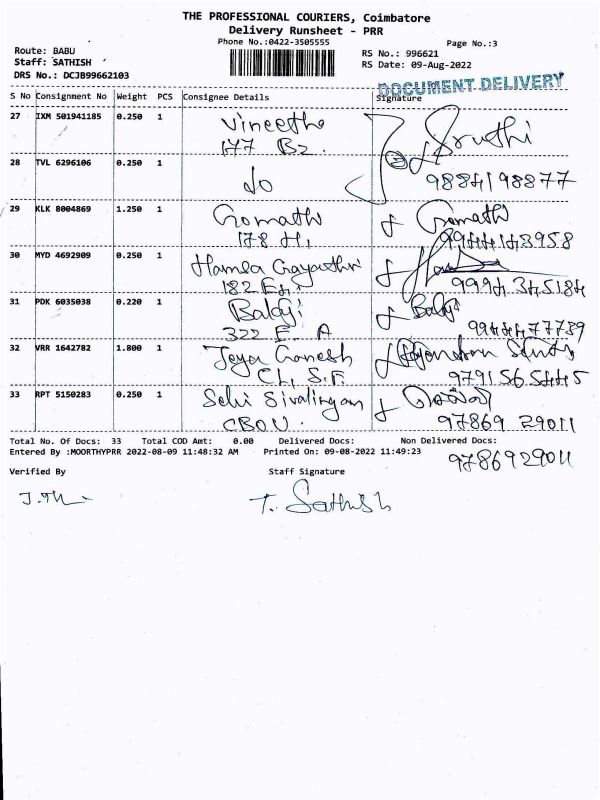 THE PROFESSIONAL COURIERS, Coimbatore
Delivery Runsheet - PRR
Phone No.:0422-3505555
Page No.:3
Route: BABU
RS No.: 996621
Staff: SATHISH
RS Date: 09-Aug-2022
DRS No.: DCJB99662103
DOCUMENT DELIVERY
S No Consignment No Weight PCS Consignee Details Signature
27 IXM 501941185 0.250 1 Vineetha Sruthi
177 B2.
28 TVL 6296106 0.250 1 do 9884198877
29 KLK 8004869 1.250 1 Gomathi Gomathi
178 H, 9944143958
30 MYD 4692909 0.250 1 Hamsa Gayathri
182 E4, 9994345184
31 PDK 6035038 0.220 1 Balaji Balaji
322 E. A 9944477789
32 VRR 1642782 1.800 1 Jeya Ganesh
C1, S.F. 9791565445
33 RPT 5150283 0.250 1 Selvi Sivalingam
CBOU. 97869 29011
Total No. Of Docs: 33 Total COD Amt: 0.00 Delivered Docs: Non Delivered Docs:
Entered By :MOORTHYPRR 2022-08-09 11:48:32 AM Printed On: 09-08-2022 11:49:23
9786929011
Verified By Staff Signature
T. Sathish